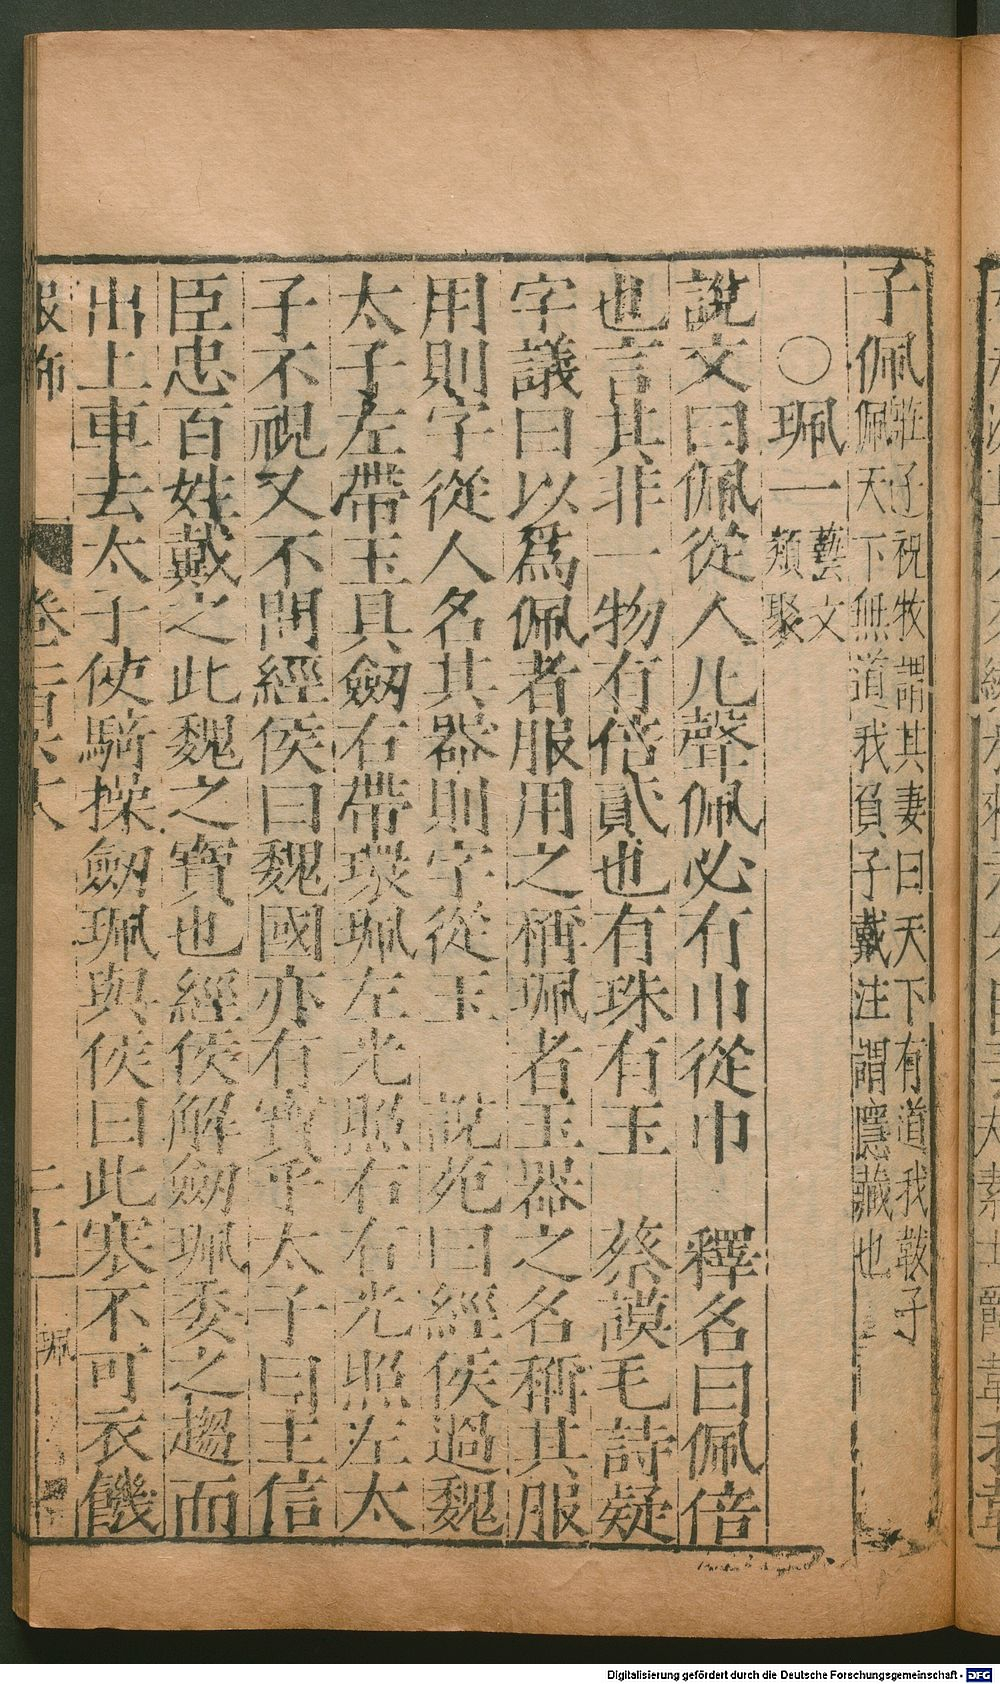 子佩莊子祝牧謂其妻曰天下有道我韍子
佩天下無道我負子戴注謂隱藏也
○珮一藝文
類聚
說文曰佩從人凡聲佩必有巾從巾　釋名曰佩倍
也言其非一物有倍貳也有珠有玉　蔡謨毛詩疑
字議曰以爲佩者服用之稱珮者玉器之名稱其服
用則字從人名其器則字從玉　說苑曰經侯過魏
太子左帶玉具劒右帶環珮左光照右右光照左太
子不視又不問經侯曰魏國亦有寶乎太子曰主信
臣忠百姓戴之此魏之寶也經侯解劒珮委之趨而
出上車去太子使騎操劒珮與侯曰此寒不可衣饑
服飾　卷三百六六　二十一　珮
Digitalisierung gefördert durch die Deutsche Forschungsgemeinschaft - DFG